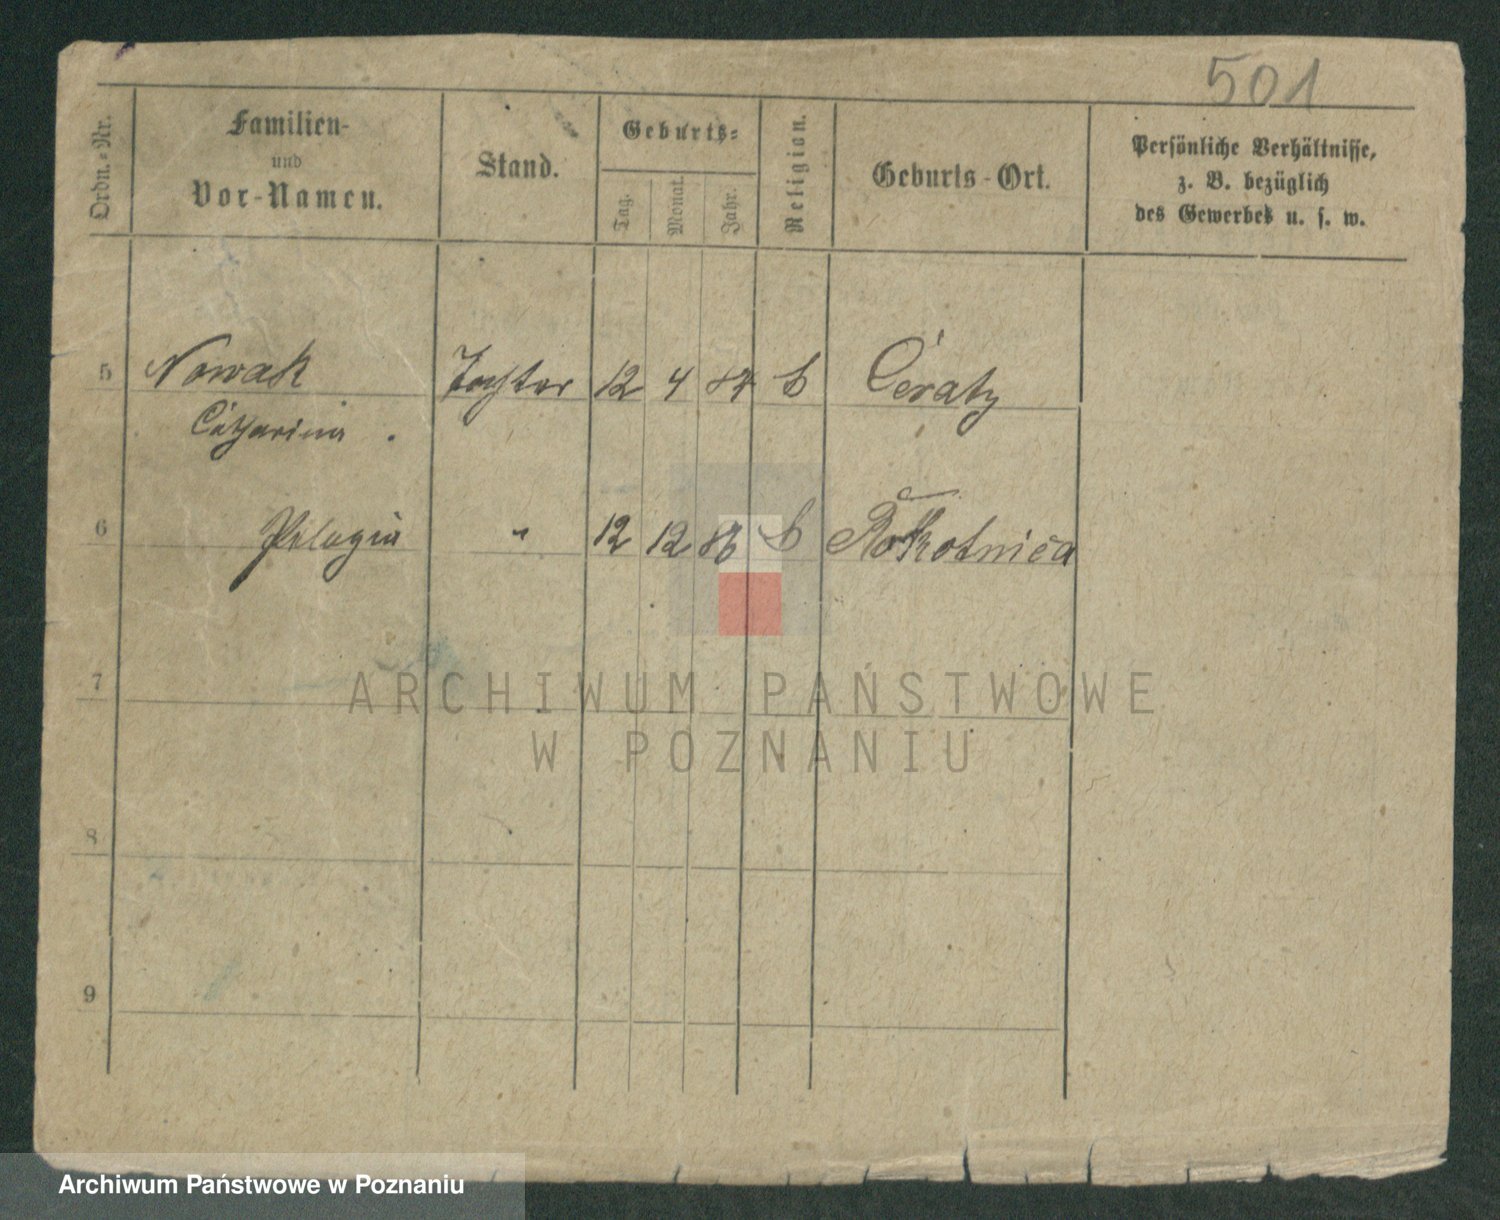 501
Ordn.-Nr.
Familien-
und
Vor-Namen.
Stand.
Geburts-
Tag.
Monat.
Jahr.
Religion.
Geburts-Ort.
Persönliche Verhältnisse,
z. B. bezüglich
des Gewerbes u. s. w.
5 Nowak Tochter 12 4 84
Catharina
6 Pelagia " 12 12 86 Rokotnica
7
8
9
ARCHIWUM PAŃSTWOWE
W POZNANIU
Archiwum Państwowe w Poznaniu